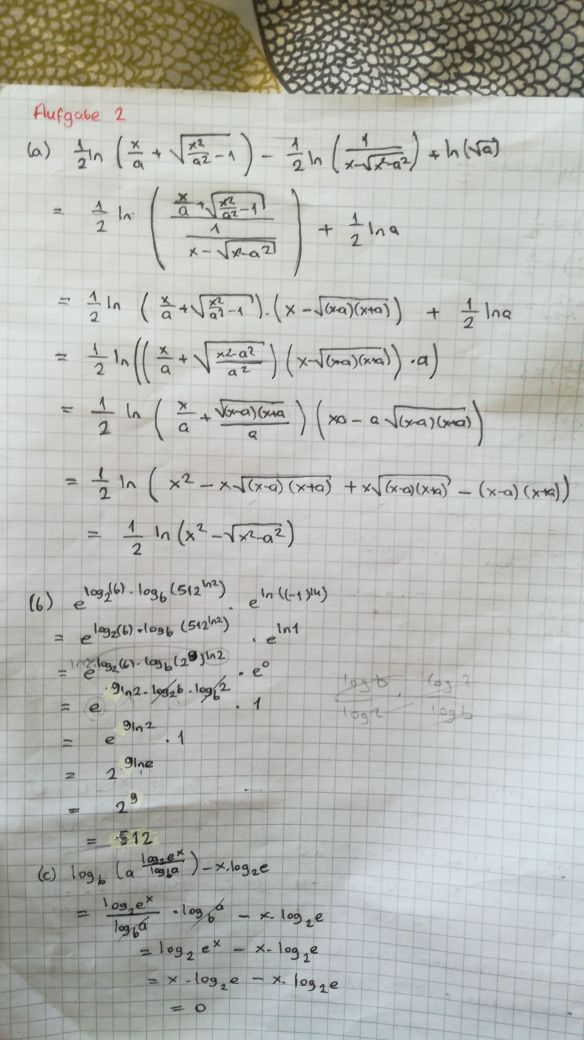 Aufgabe 2
(a) 1/2 ln (x/a + √(x²/a² - 1)) - 1/2 ln (1/(x-√(x²-a²))) + ln(√a)
= 1/2 ln ((x/a + √(x²/a² - 1))/(1/(x-√(x²-a²)))) + 1/2 ln a
= 1/2 ln (x/a + √(x²/a² - 1)) · (x - √((x-a)(x+a))) + 1/2 ln a
= 1/2 ln ((x/a + √((x²-a²)/a²)) (x-√((x-a)(x+a))) · a)
= 1/2 ln (x/a + √((x-a)(x+a))/a) (xa - a √((x-a)(x+a)))
= 1/2 ln (x² - x√((x-a)(x+a)) + x√((x-a)(x+a)) - (x-a)(x+a))
= 1/2 ln (x² - √(x²-a²))
(b) e^(log₂(b) · log_b(512^(ln2))) · e^(ln((-1)^14))
= e^(log₂(b) · log_b(512^(ln2))) · e^(ln1)
= e^(ln2·log₂(b) · log_b(2⁹)ln2) · e⁰
= e^(9ln2 · log₂b · log_b2) · 1
log b/log 2 · log 2/log b
= e^(9ln2) · 1
= 2^(9lne)
= 2⁹
= 512
(c) log_b (a^(log₂eˣ/log_b a)) - x·log₂e
= log₂eˣ/log_b a · log_b a - x·log₂e
= log₂ eˣ - x·log₂e
= x·log₂e - x·log₂e
= 0